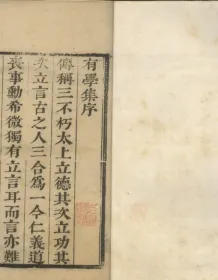 有學集序
傳稱三不朽太上立德其次立功其
次立言古之人三合爲一今仁義道
喪事勳希微獨有立言耳而言亦難